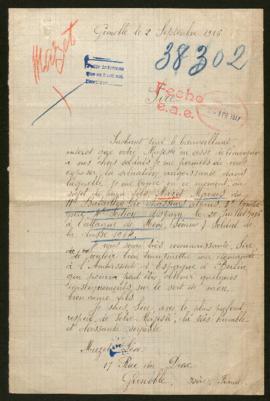 Grenoble le 2 Septembre 1916
Muzet
38302
Fecho
e.a.e.
Sire
Sachant tout le bienveillant
interet que votre Majesté ne cesse de témoigner
à nos chers soldats je me permets de vous
exposer la situation angoissante dans
laquelle je me trouve en ce moment, au
sujet de mon fils, Muzet
11e Bataillon de chasseurs alpins
disparu le 20 Juillet 1916
à l'attaque de (Somme) Soldat de
la classe 1912
Je vous serais très reconnaissante, Sire
de vouloir bien transmettre ma demande
à l'Ambassade d'Espagne à Berlin
qui pourrait peut être obtenir quelques
renseignements sur le sort de mon
bien aimé fils.
Je suis, Sire, avec le plus profond
respect de Votre Majesté, la très humble
et obéissante servante
Muzet
17 Rue du Drac
Grenoble
Isère France